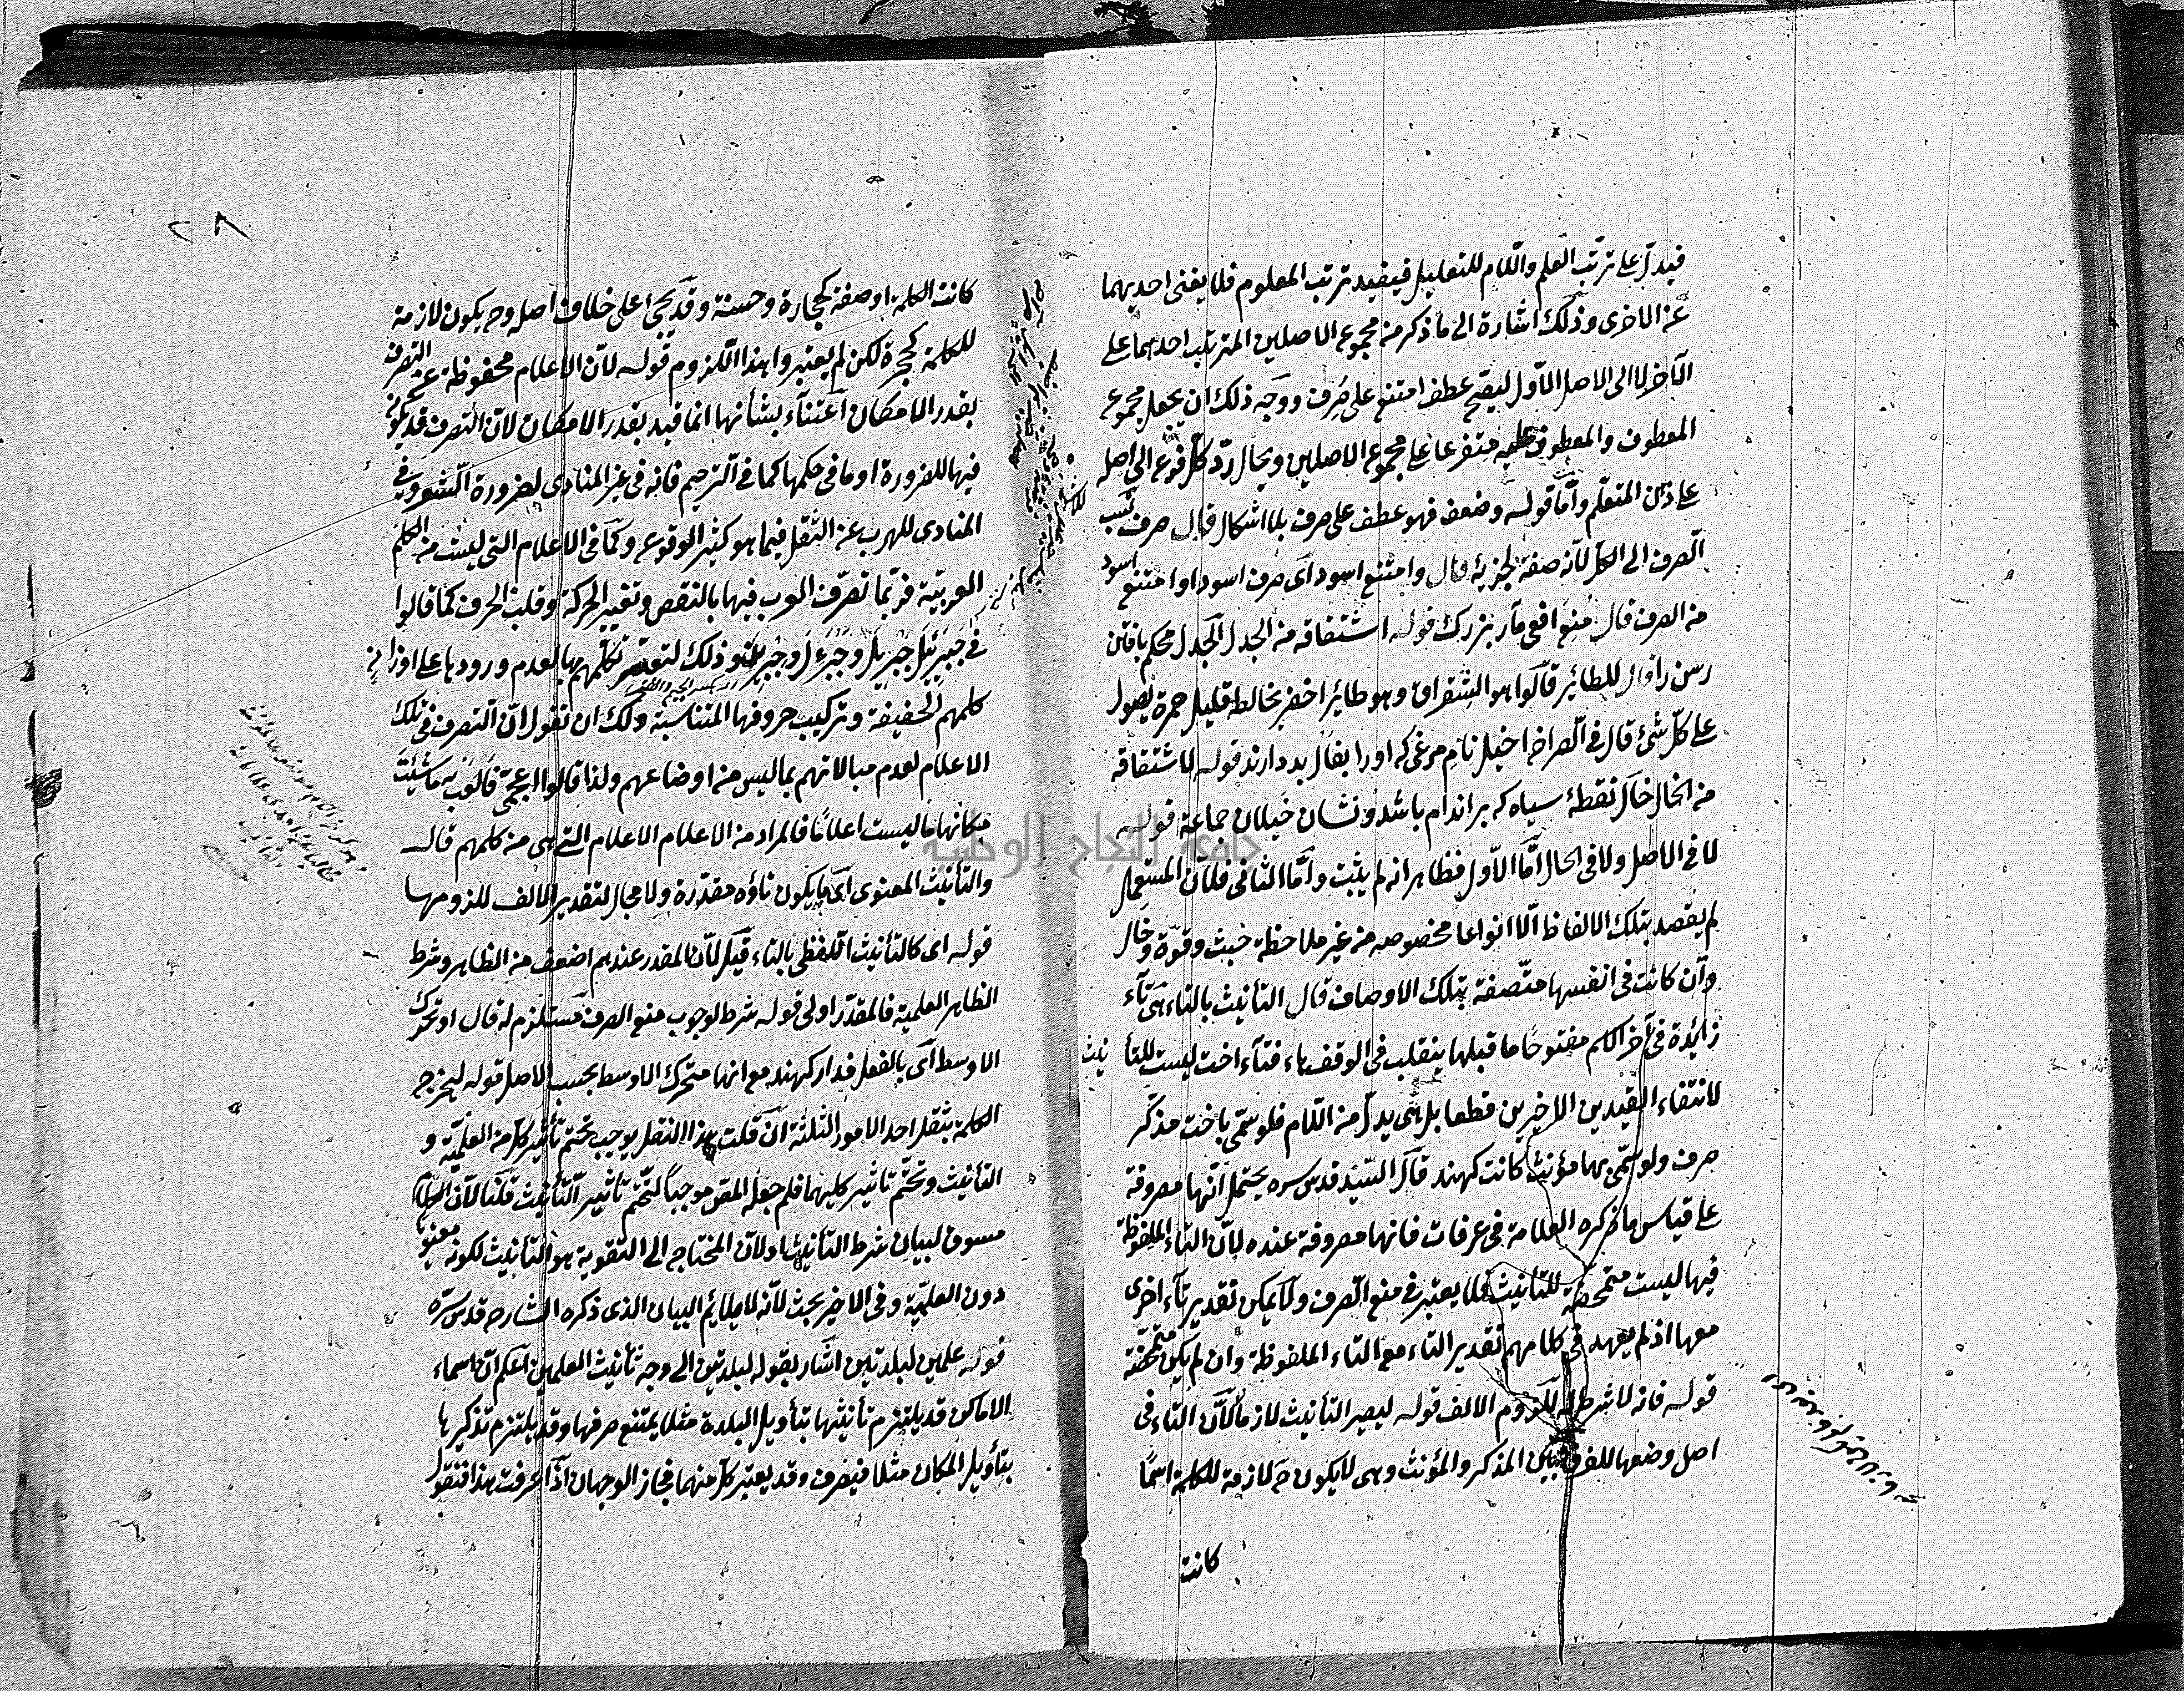 فيدل على ترتب العلم واللام للتعليل فيفيد ترتب المعلوم فلا يغنى احديهما
عن الاخرى وذلك اشارة الى ما ذكر من مجموع الاصلين المترتب احدهما على
الآخر لا الى الاصل الاول ليصح عطف امتنع على صُرف ووجه ذلك ان يجعل مجموع
المعطوف والمعطوف عليه متفرعا على مجموع الاصلين ويحال ردّ كل فرع الى اصل
على ذهن المتعلم وامّا قوله وضعف فهو عطف على صرف بلا اشكال قال صرف نسب
الصرف الى الكل لانه صفة لجزئه قال وامتنع اسود اى صرف اسود او امتنع اسود
من الصرف قال مُنع افعى مار بزرك قوله اشتقاقه من الجدل الجدل محكم بافتن
رسن قال للطائر قالوا هو الشقراق وهو طائر اخضر يخالطه قليل حمرة يصول
على كلّ شئ قال فى الصراح اخيل نام مرغى كه او را بفال بد دارند قوله لاشتقاقه
من الخال خال نقطهٔ سياه كه بر اندام باشد ونشان خيلان جماعة قوله
لا فى الاصل ولا فى الحال امّا الاول فظاهر انه لم يثبت وامّا الثانى فلان المستعمل
لم يقصد بتلك الالفاظ الّا انواعا مخصوصه من غير ملاحظة خبث وقوّة وخال
وان كانت فى انفسها متّصفة بتلك الاوصاف قال التأنيث بالتاء هى تآء
زائدة فى آخر الكلم مفتوحا ما قبلها ينقلب فى الوقف هاء فتآء اخت ليست للتأنيث
لانتفاء القيدين الاخيرين قطعا بل هى بدل من اللام فلو سمّى باخت مذكر
صرف ولو سمّى بها مؤنث كانت كهند قال السيّد قدس سره يحتمل انّها مصروفة
على قياس ما ذكره العلامة فى عرفات فانها مصروفة عنده لانّ التاء الملفوظة
فيها ليست متمحضة للتأنيث فلا يعتبر فى منع الصرف ولا يمكن تقدير تآء اخرى
معها اذ لم يعهد فى كلامهم تقدير التاء مع التاء الملفوظة وان لم يكن متمحضة
قوله فانه لا شرط له للزوم الالف قوله ليصير التأنيث لازما لان التاء فى
اصل وضعها للفرق بين المذكر والمؤنث وهى لا يكون ح لازمة للكلمة اسمًا
كانت
٢٨
كانت الكلمة او صفة كحجارة وحسنة وقد يجئ على خلاف اصله وح يكون لازمة
للكلمة كحجرة لكن لم يعتبروا هذا اللزوم قوله لانّ الاعلام محفوظة عن التصرف
بقدر الامكان اعتنآء بشأنها انما قيد بقدر الامكان لان التصرف قد يكون
فيها للضرورة او ما فى حكمها كما فى الترخيم فانه فى غير المنادى لضرورة الشعر وفى
المنادى للهرب عن الثقل فيما هو كثير الوقوع وكما فى الاعلام التى ليست من الكلم
العربية فربّما تصرّف العرب فيها بالنقص وتغيير الحركة وقلب الحرف كما قالوا
كلمهم الخفيفة وتركيب حروفها المتناسبة ولك ان تقول ان التصرف فى تلك
الاعلام لعدم مبالاتهم بما ليس من اوضاعهم ولذا قالوا اعجمى فالعب به ما شئت
فكانها ما ليست اعلاما فالمراد من الاعلام الاعلام التى هى من كلمهم قال
والتأنيث المعنوى اى ما يكون تاؤه مقدّرة ولا مجال لتقدير الالف للزومها
قوله اى كالتأنيث اللفظى بالتاء قيل لانّ المقدر عندهم اضعف من الظاهر وشرط
الظاهر العلمية فالمقدّر اولى قوله شرط لوجوب منع الصرف مستلزم له قال او تحرك
الاوسط اى بالفعل فدار كهند مع انها متحرك الاوسط بحسب الاصل قوله ليخرج
الكلمة بثقل احد الامور الثلثة ان قلت هذا الثقل يوجب تحتم تأثير كل من العلمية و
التأنيث وتحتّم تأثير كليهما فلم جعله المص موجبا لتحتم تأثير التأنيث قلنا لان
مسوق لبيان شرط التأنيث او لان المحتاج الى التقوية هو التأنيث لكونه معنويا
دون العلميّة وفى الاخير بحث لانّه لا يلائم البيان الذى ذكره الشارح قدس سره
قوله علمين لبلدتين اشار بقوله لبلدتين الى وجه تأنيث العلمين اعلم انّ اسماء
الاماكن قد يلتزم تأنيثها بتأويل البلدة مثلا يمتنع صرفها وقد يلتزم تذكيرها
بتأويل المكان مثلا فيصرف وقد يعتبر كل منهما فجاز الوجهان اذا عرفت هذا فنقول
جامعة النجاح الوطنية